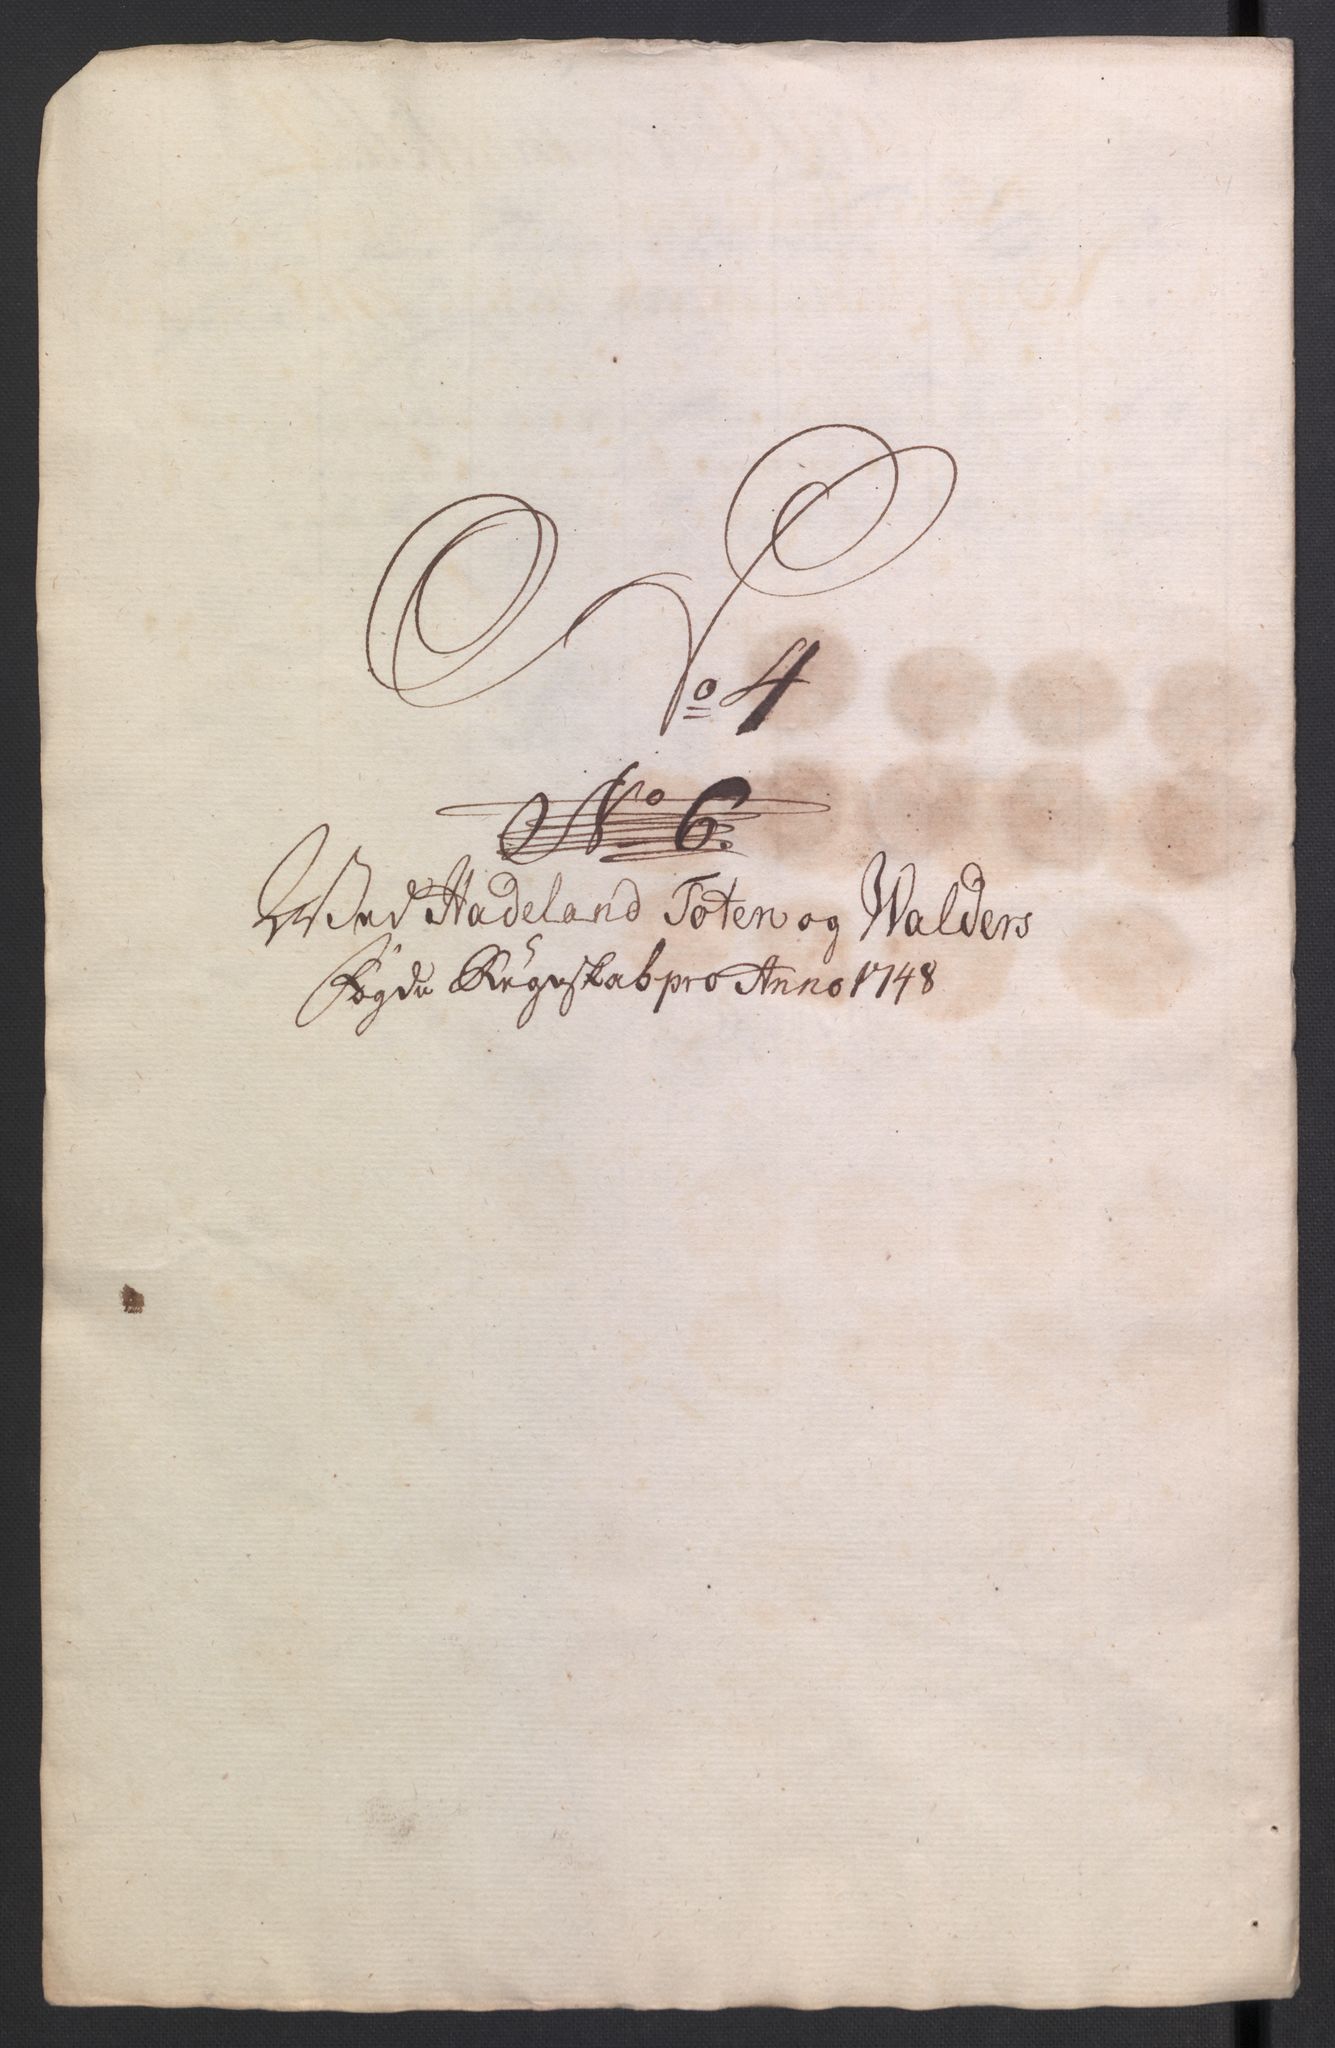 No 4
No 6.
Wed Hadeland Toten og Walders
Fögde Regnskab pro Anno 1748